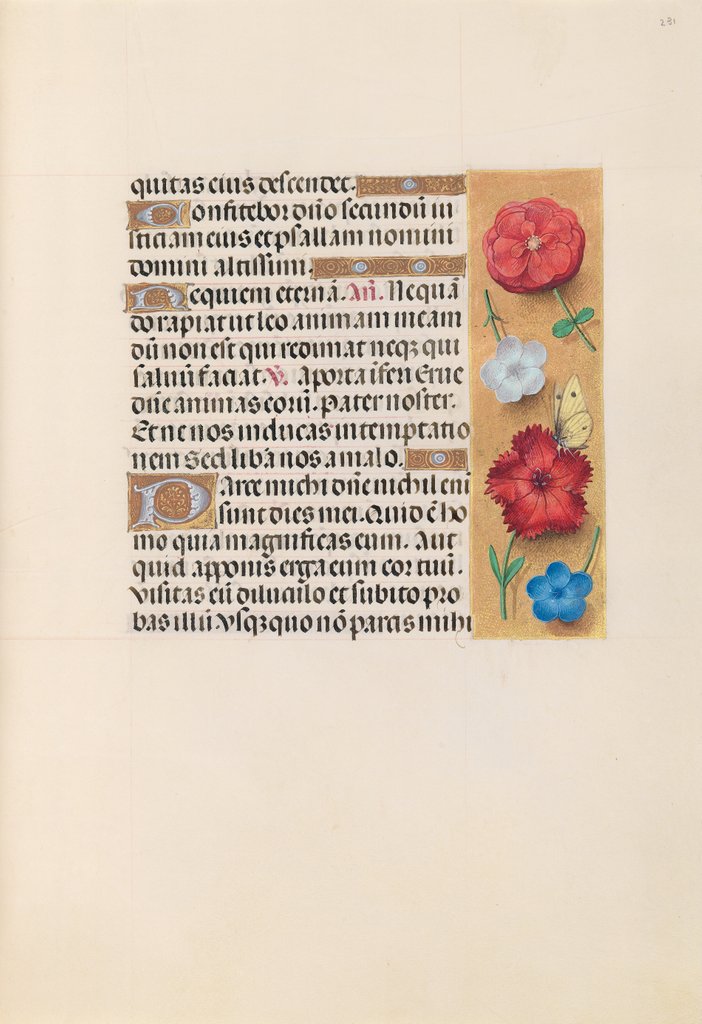 281
quitas eius descendet.
Confitebor dño secundũ iu
sticiam eius et psallam nomini
domini altissimi.
Requiem eternã. Añ. Nequã
do rapiat ut leo animam meam
dũ non est qui redimat neqz qui
saluũ faciat. V. A porta ĩferi Erue
dñe animas eorũ. Pater noster.
Et ne nos inducas in temptatio
nem Sed libã nos a malo.
Parce michi dñe nichil enĩ
sunt dies mei. Quid ẽ ho
mo quia magnificas eum. Aut
quid apponis erga eum cor tuũ.
Visitas eũ diluculo et subito pro
bas illũ. Vsqzquo nõ parcis mihi